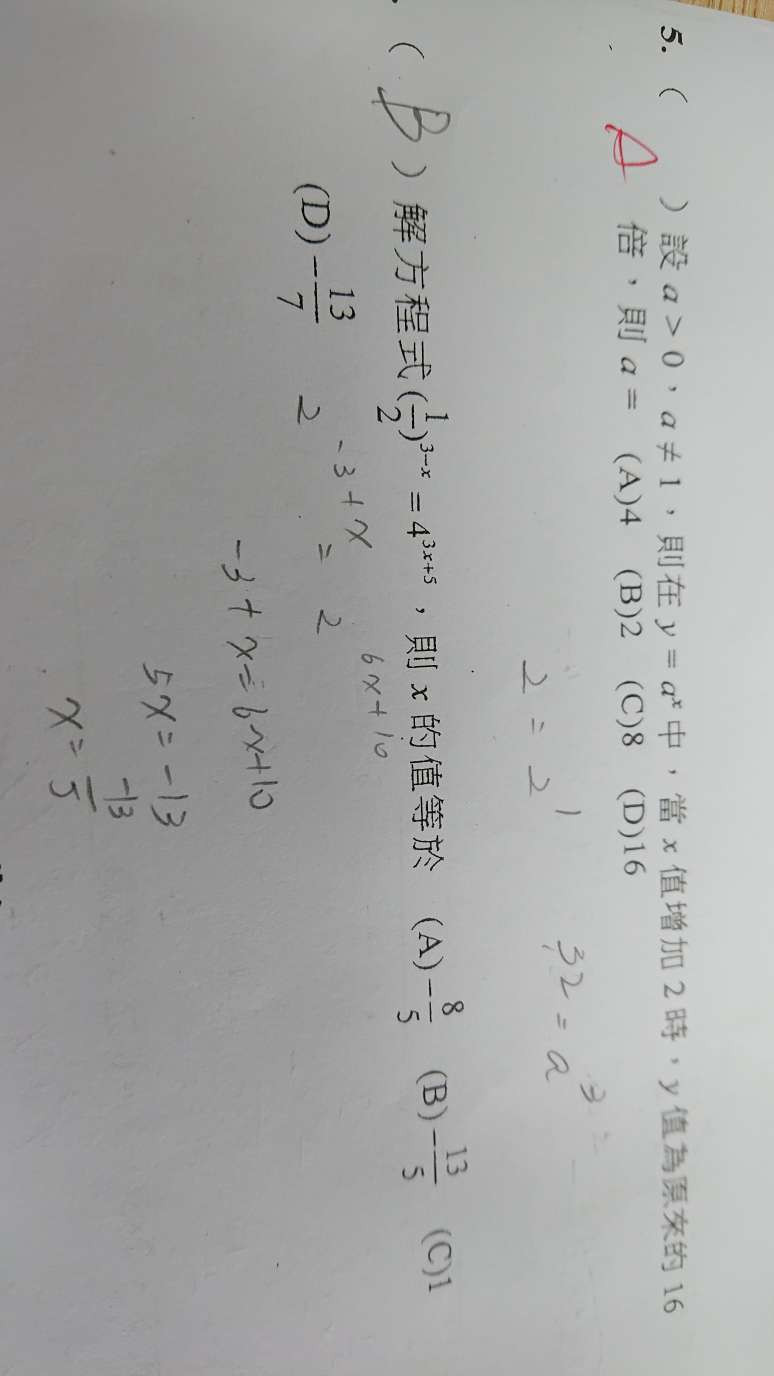 5. ( A ) 設 a > 0，a ≠ 1，則在 y = a^x 中，當 x 值增加 2 時，y 值為原來的 16
倍，則 a = (A)4 (B)2 (C)8 (D)16
2 = 2^1
32 = a^3
( B ) 解方程式 (1/2)^{3-x} = 4^{3x+5}，則 x 的值等於 (A) -8/5 (B) -13/5 (C)1
(D) -13/7
2^{-3+x} = 2^{6x+10}
-3+x=6x+10
5x=-13
x=-13/5